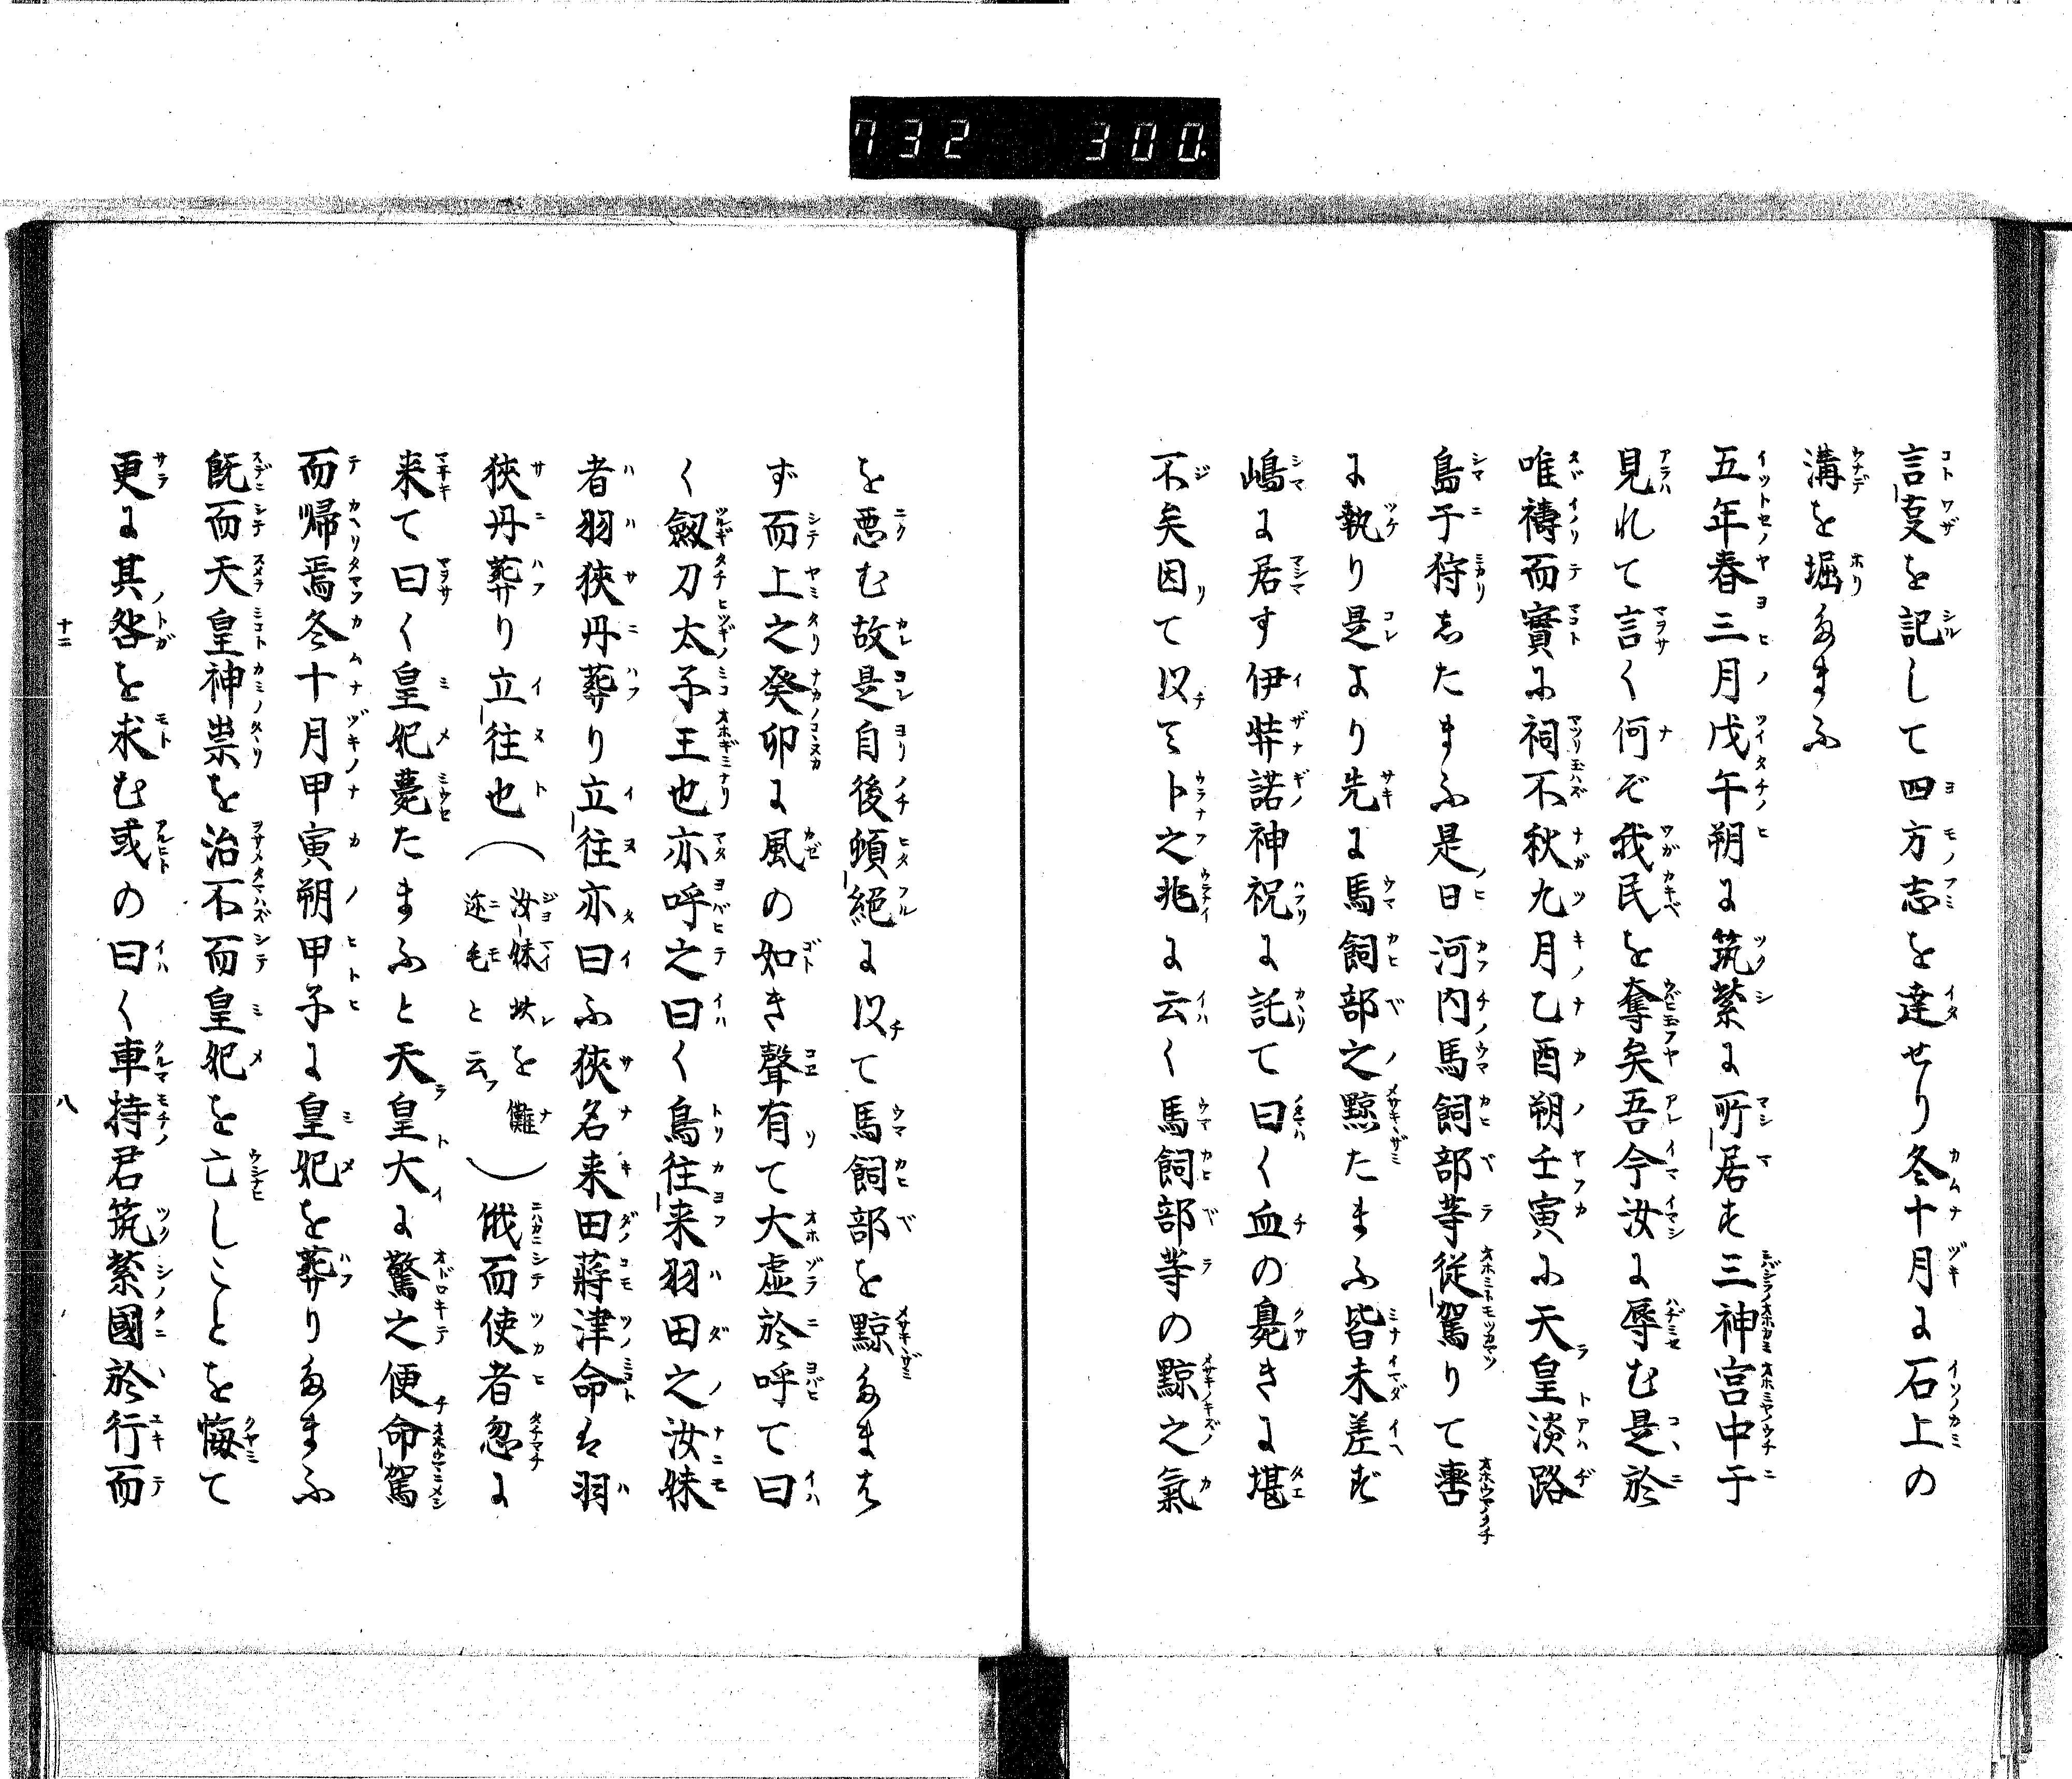 732 300.
言叓を記して四方志を達せり冬十月に石上の
溝を堀たまふ
五年春三月戊午朔に筑紫に所居す三神宮中于
見れて言く何ぞ我民を奪矣吾今汝に辱む是於
唯禱而實に祠不秋九月乙酉朔壬寅に天皇淡路
島于狩したまふ是日河内馬飼部等從駕りて轡
に執り是より先に馬飼部之黥たまふ皆未差ず
嶋に居す伊弉諾神祝に託て曰く血の臭きに堪
不矣因て以て卜之兆に云く馬飼部等の黥之氣
を悪む故是自後頓絶に以て馬飼部を黥たまは
ず而上之癸卯に風の如き聲有て大虚於呼て曰
く劔刀太子王也亦呼之曰く鳥往来羽田之汝妹
者羽狹丹葬り立往亦曰ふ狹名来田蒋津命は羽
狹丹葬り立往也（汝妹此を儺迩毛と云）俄而使者忽に
来て曰く皇妃薨たまふと天皇大に驚之便命駕
而帰焉冬十月甲寅朔甲子に皇妃を葬りたまふ
既而天皇神祟を治不而皇妃を亡しことを悔て
更に其咎を求む或の曰く車持君筑紫國於行而
十二 八